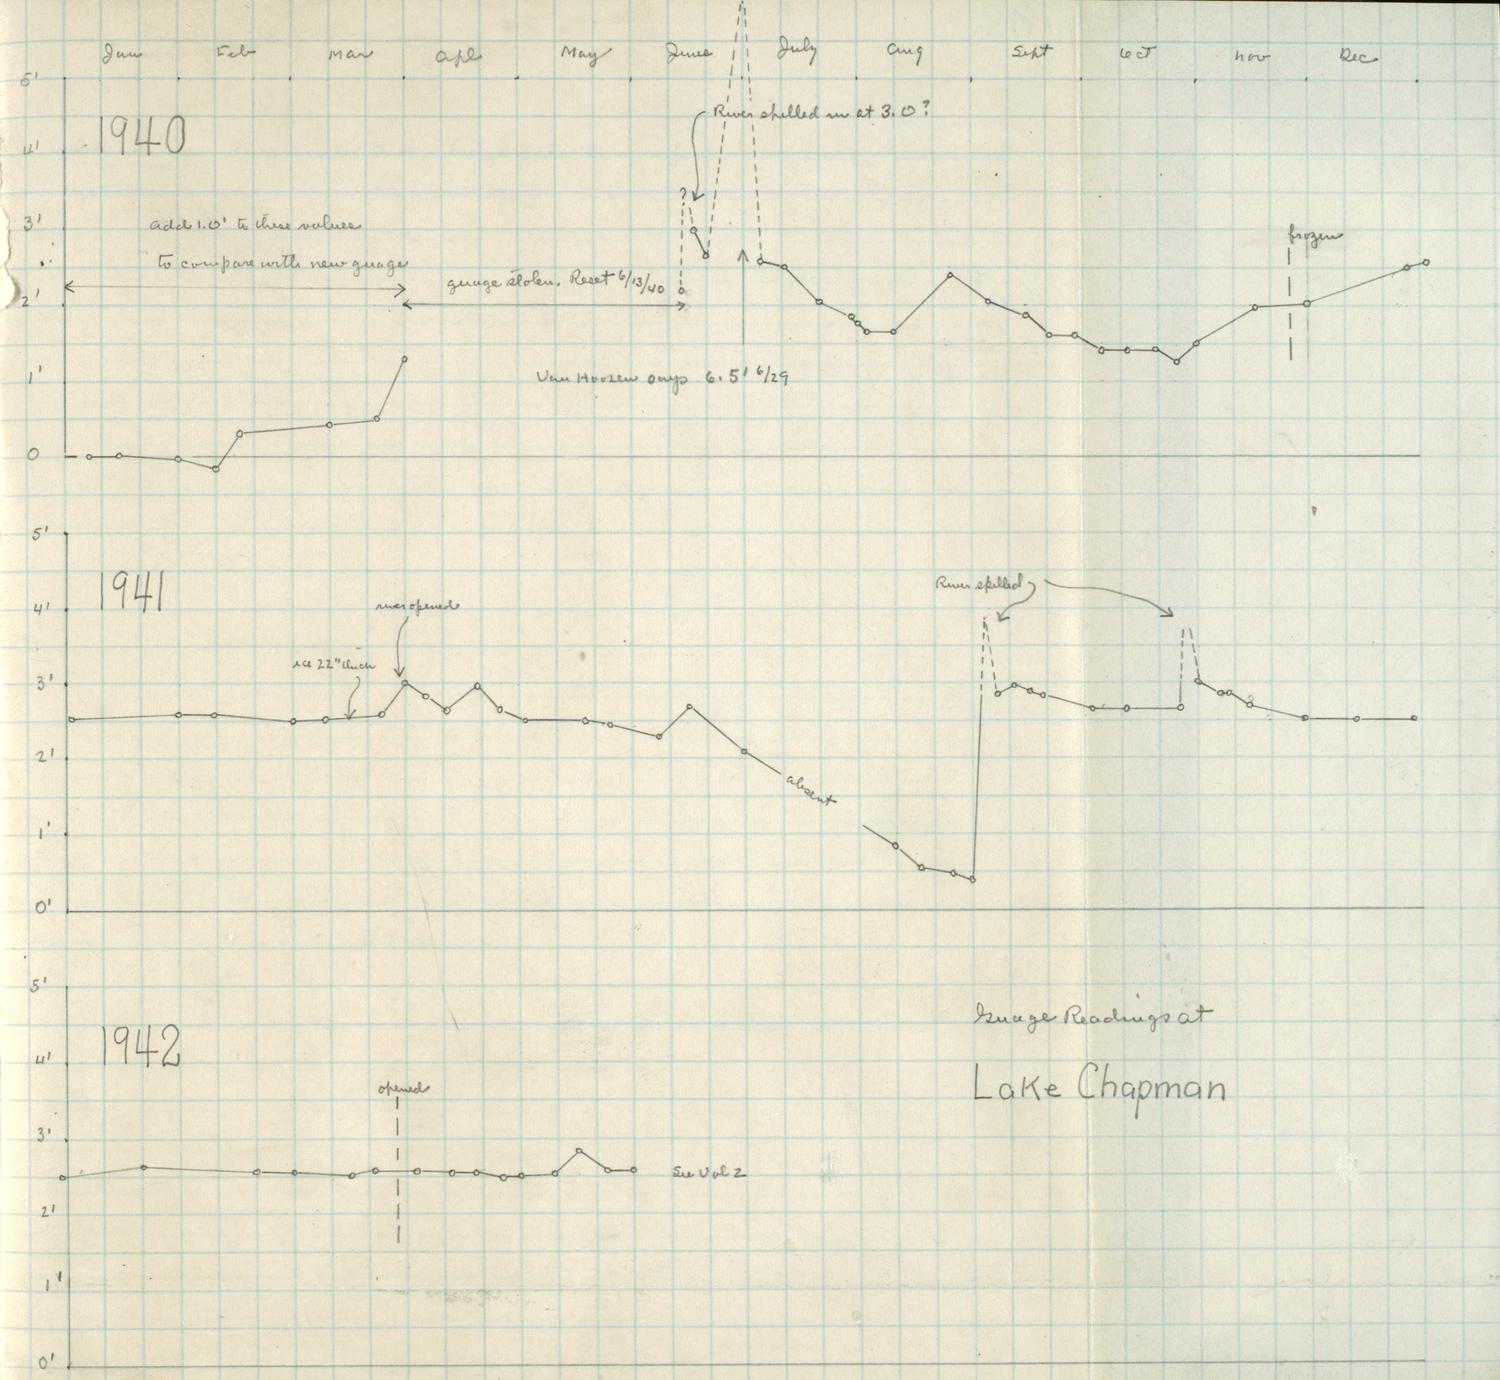 Jan Feb Mar Apl May June July Aug Sept Oct Nov Dec
5'
1940
River spilled in at 3.0?
4'
?
3'
add 1.0' to these values
frozen
to compare with new guage
guage stolen. Reset 6/13/40
2'
1'
Van Hoosen says 6.5' 6/29
0
5'
1941
River spilled
4'
river opened
ice 22" thick
3'
2'
absent
1'
0'
5'
Guage Readings at
1942
4'
Lake Chapman
opened
3'
See Vol 2
2'
1'
0'